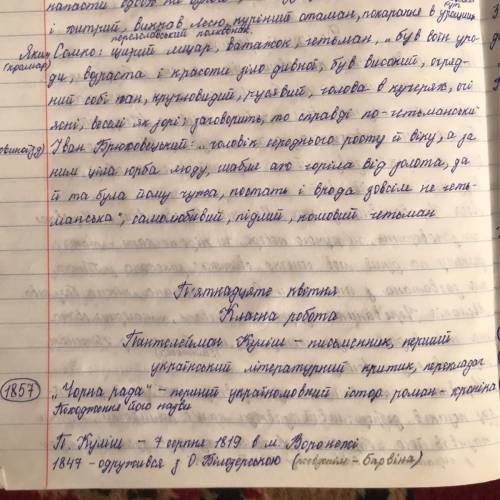 напасти
і хитрий, викрав Лесю, курінний отаман, покарання в
переяславський полковник
Яким Сомко: щирий лицар, ватажок, гетьман, „був воїн уро-
(крамар)
ди, возраста і красоти зіло дивної, був високий, огряд-
ний собі пан, кругловидий, русявий, голова в кучерях, очі
ясні, веселі як зорі; заговорить, то справді по-гетьманськи
Іван Брюховецький: „чоловік середнього росту й віку, а за
ним ціла юрба люду, шабля аж горіла від золота, да
й та була йому чужа, постать і врода зовсім не геть-
манська", самолюбивий, підлий, комовий гетьман
П'ятнадцяте квітня
Класна робота
Пантелеймон Куліш – письменник, перший
український літературний критик, переклада
1857 „Чорна рада" – перший україномовний істор. роман-хроніка
Походження його назви
П. Куліш – 7 серпня 1819 в м. Вороніжі
1847 – одружився з О. Білозерською (псевдонім – Барвінок)